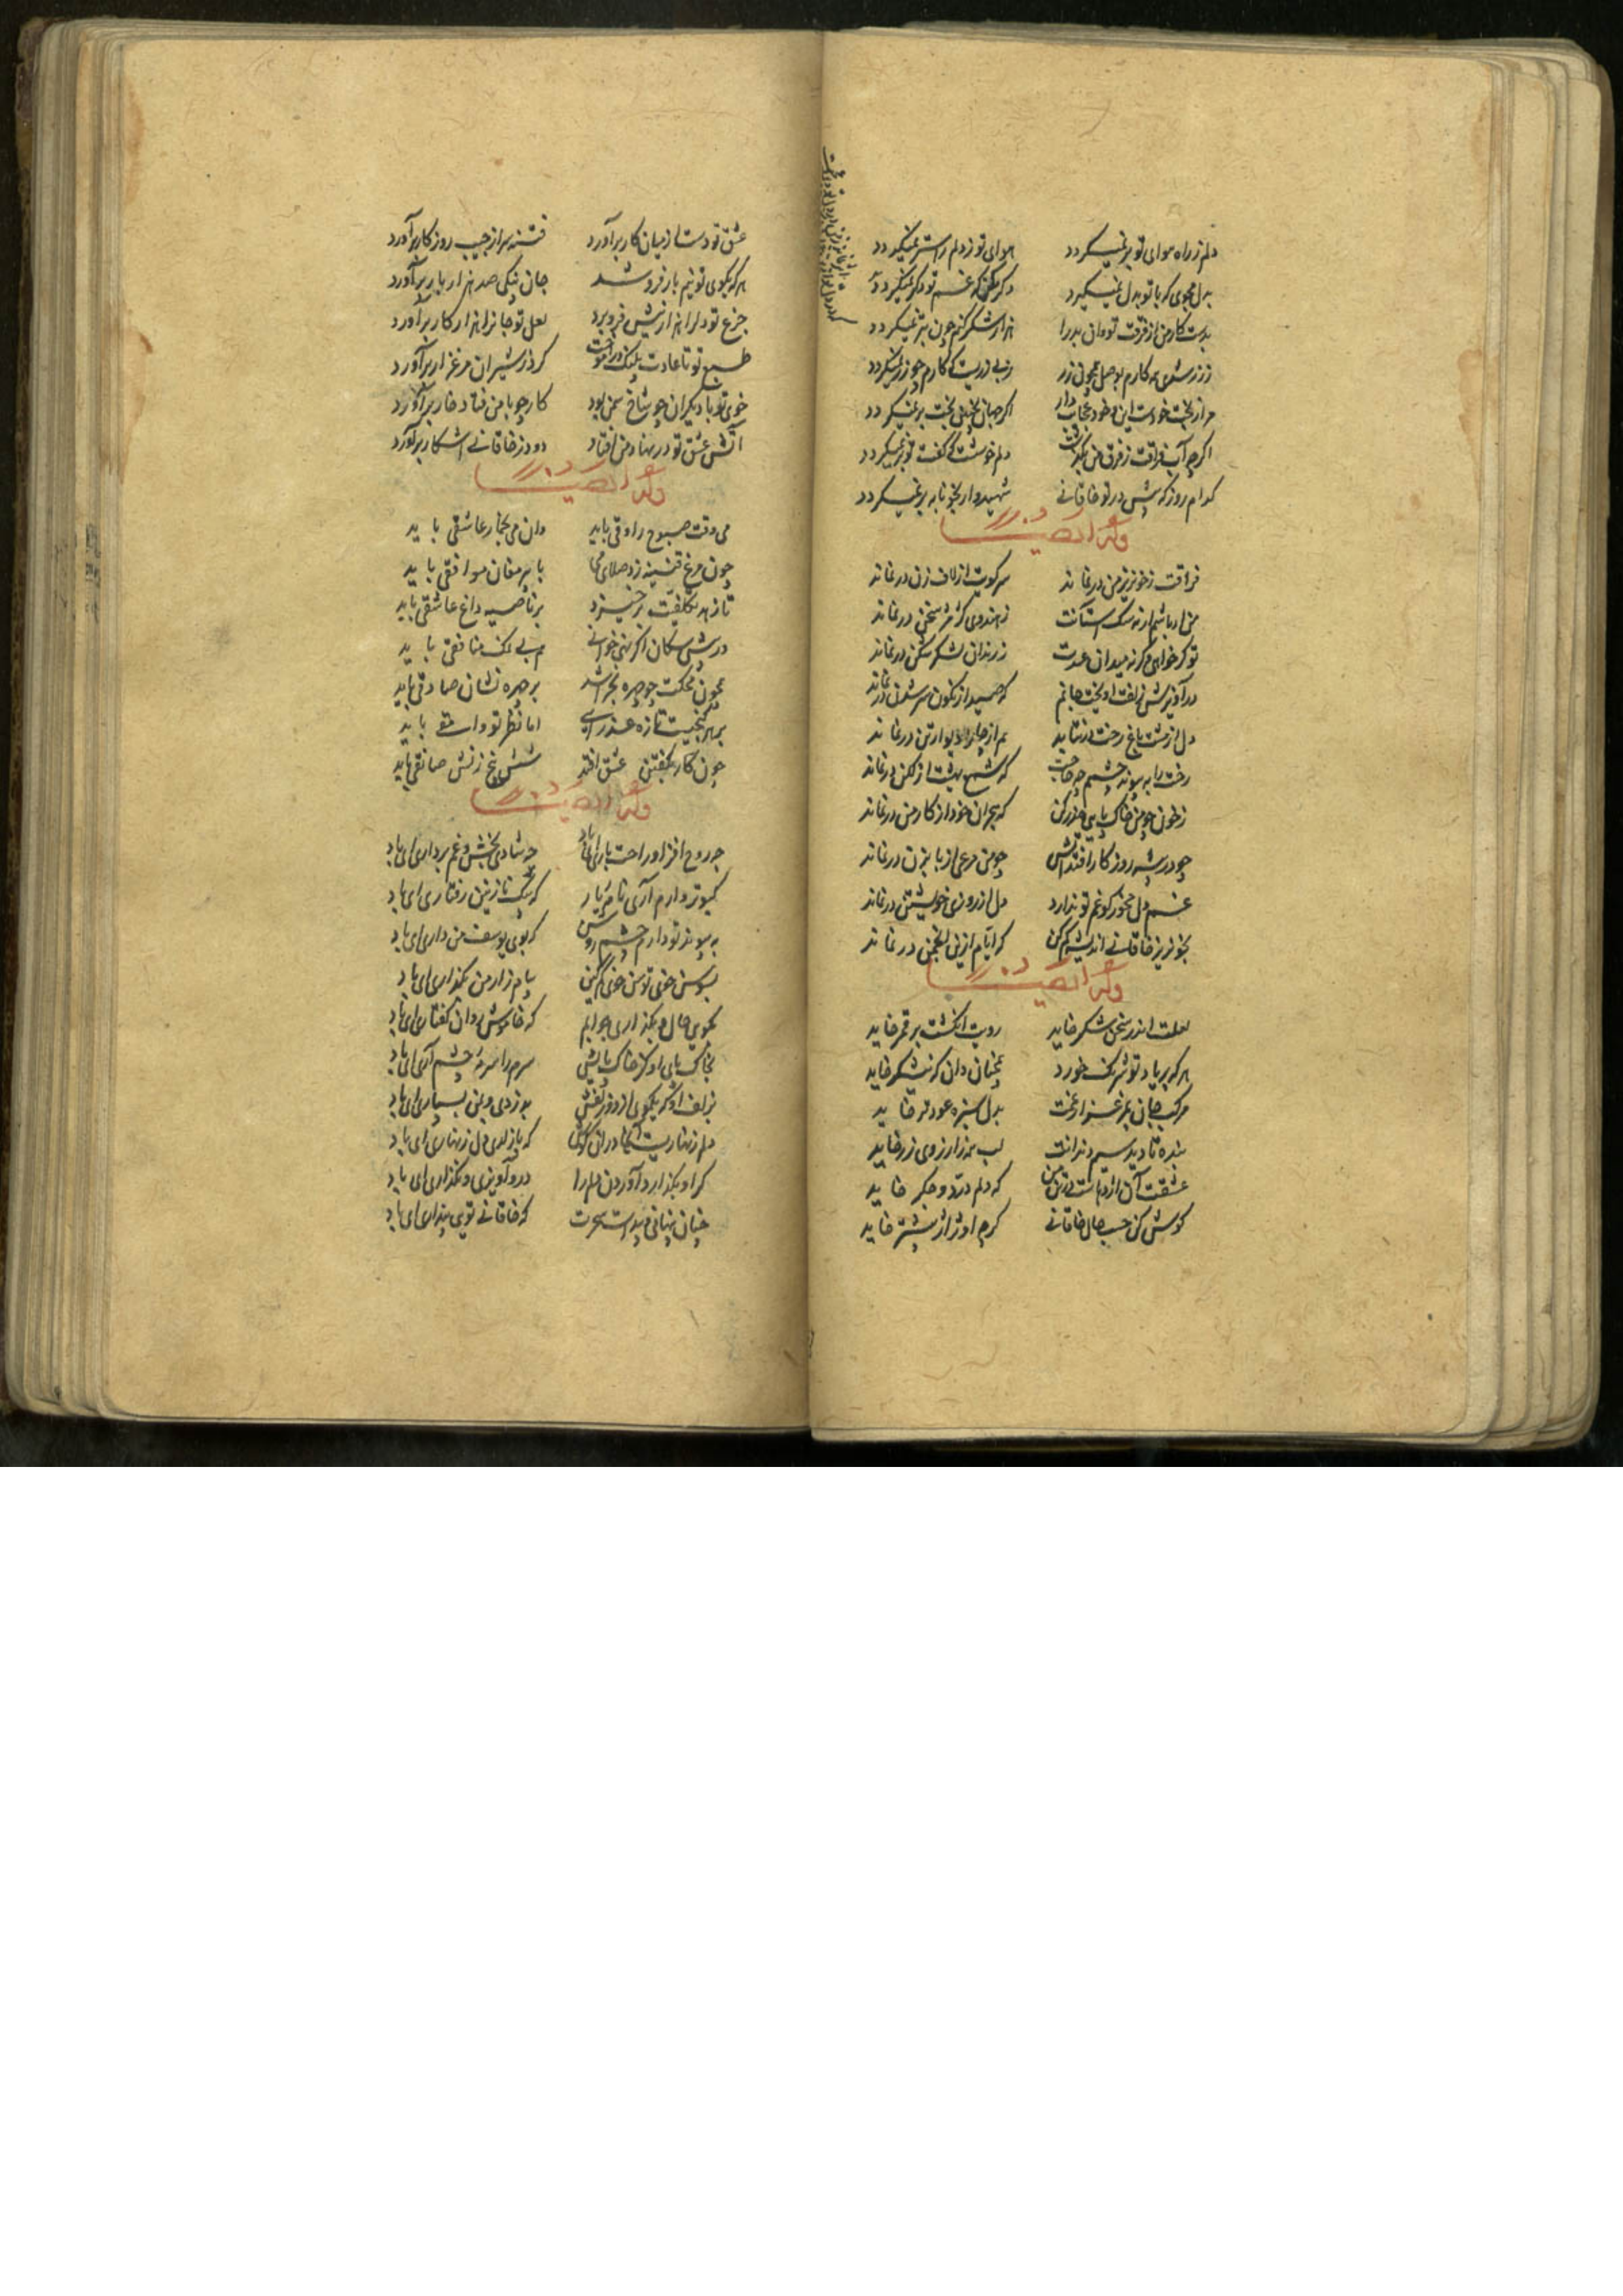 دلم ز راه هوای تو برنمیکردد هوای تو ز دلم زاستر نمیکردد
بدل مجوی که با تو بدل نمیکیرد دکر مکن که غم تو دکر نمیکردد
بدست کار من از فرقت تو وان بد را هزار شکر کنم چون بتر نمیکردد
ز زر شدی همه کارم بوصل همچون زر ز بی زریست که کارم چو زر نمیکردد
مرا ز بخت خودست این و خود عجایب دار اکر جهان بچنین بخت برنمیکردد
اکرچه آب فراقت ز فرق من بکذشت دلم خوشست که کفت تو تر نمیکردد
کدام روز که پیش در تو خاقانی شهیدوار بخونابه بر نمیکردد
وله ایضا
فراقت ز خونریز من در نماند سر کویت از لاف زن در نماند
من ار باشم ار نه سک آستانت ز هندوی کژمژ سخن در نماند
تو کر خواهی و کر نه میدان عشقت ز رندان لشکر شکن در نماند
درآویزش زلفت اویخت جانم که صید از نکون سر شدن در نماند
دل از هشت باغ رخت در نیاید هم از چار دیوار تن در نماند
رخت را به پیوند چشمم چه حاجت که شمع بهشت از لکن در نماند
ز خون چو من خاک پایی حذر کن که هجران خود از کار من در نماند
چو در بیشه روز کار افتد آتش چو من مرغی از بابزن در نماند
غم دل مخور کو غم تو ندارد دل از روزی خویشتن در نماند
بخونریز خاقانی اندیشه کم کن که ایام ازین انجمن در نماند
وله ایضا
لعلت اندر سخن شکر خاید رویت انکشت بر قمر خاید
هر که بر یاد تو شرنک خورد همچنان دان که نیشکر خاید
مرکب جان بمرغزار غمت بدل سبزه عود تر خاید
بنده تا دید سیم دندانت لب همه ز ارزوی زر خاید
عشقت آن اژدهاست در تن من که دلم درد و جکر خاید
کوش کن حسب حال خاقانی کرچه او ژاژ بیشتر خاید
عشق تو دست از میان کار برآورد فتنه سر از جیب روزکار برآورد
هر که بکوی تو نیم بار فرو شد جان بیکی صد هزار بار برآورد
جزع تو دل را هزار نیش فرو برد لعل تو جانرا هزار کار برآورد
طبع تو تا عادت پلنک درآموخت کرد ز شیران مرغزار برآورد
خوی تو با دیکران چو شاخ سمن بود کار چو با من فتاد خار برآورد
آتش عشق تو در نهاد من افتاد دود ز خاقانی آشکار برآورد
وله ایضا
می وقت صبوح راوقی باید وان می بخمار عاشقی باید
چون مرغ قنینه زد صلای می با پیر مغان موافقی باید
تا زهد تکلفت برخیزد بر ناصیه داغ عاشقی باید
در پیش سکان اکر نهی خوانی هم بی نمک منافقی باید
چون محکت چو چهره بخراشد بر چهره نشان صادقی باید
بر هر کنجیست تازه عذرایی اما نظر تو وامقی باید
چون کار بکفتن عشق افتد شش پنج زنش صانقی باید
وله ایضا
چه روح افزا و راحت باری ای باد چه شادی بخش و غم برداری ای باد
کبوتر وارم آری نامه یار که پیک نازنین رفتاری ای باد
به پیوند تو دارم چشم روشن که بوی یوسف من داری ای باد
پیام زار من بکذاری ای باد
بکویی حال و بکذاری جوابم که خاموش روان کفتاری ای باد
بخاک پای او کز خاک پایش سرم را سرمه چشم آری ای باد
بزلف او که یکموی از دو زلفش بدزدی و بمن بسپاری ای باد
دلم زنهاریست آنجا در ان کوش که باز آری دل زنهاری ای باد
کر او بکذارد آوردن دلم را درو آویزی و نکذاری ای باد
چنان پنهانی و پیداست سحرت که خاقانی تویی پنداری ای باد